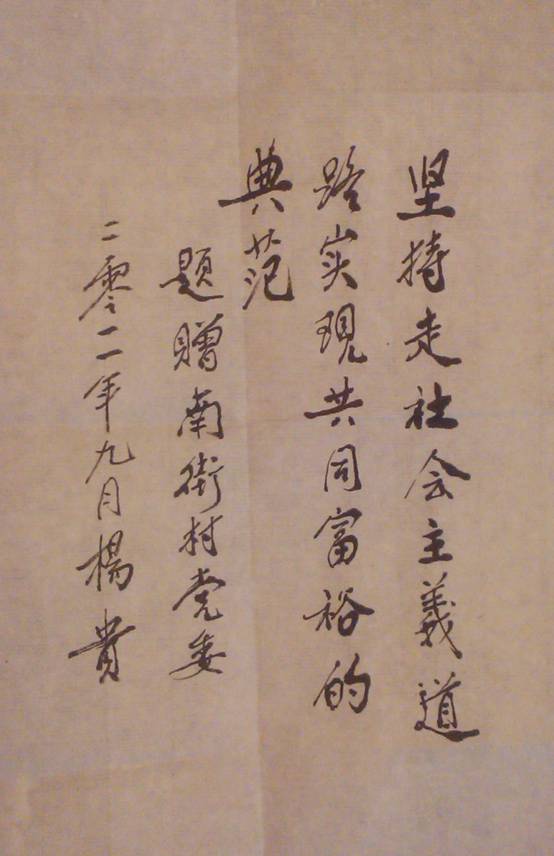 坚持走社会主義道
路实現共同富裕的
典范
題贈南街村党委
二零一一年九月楊貴